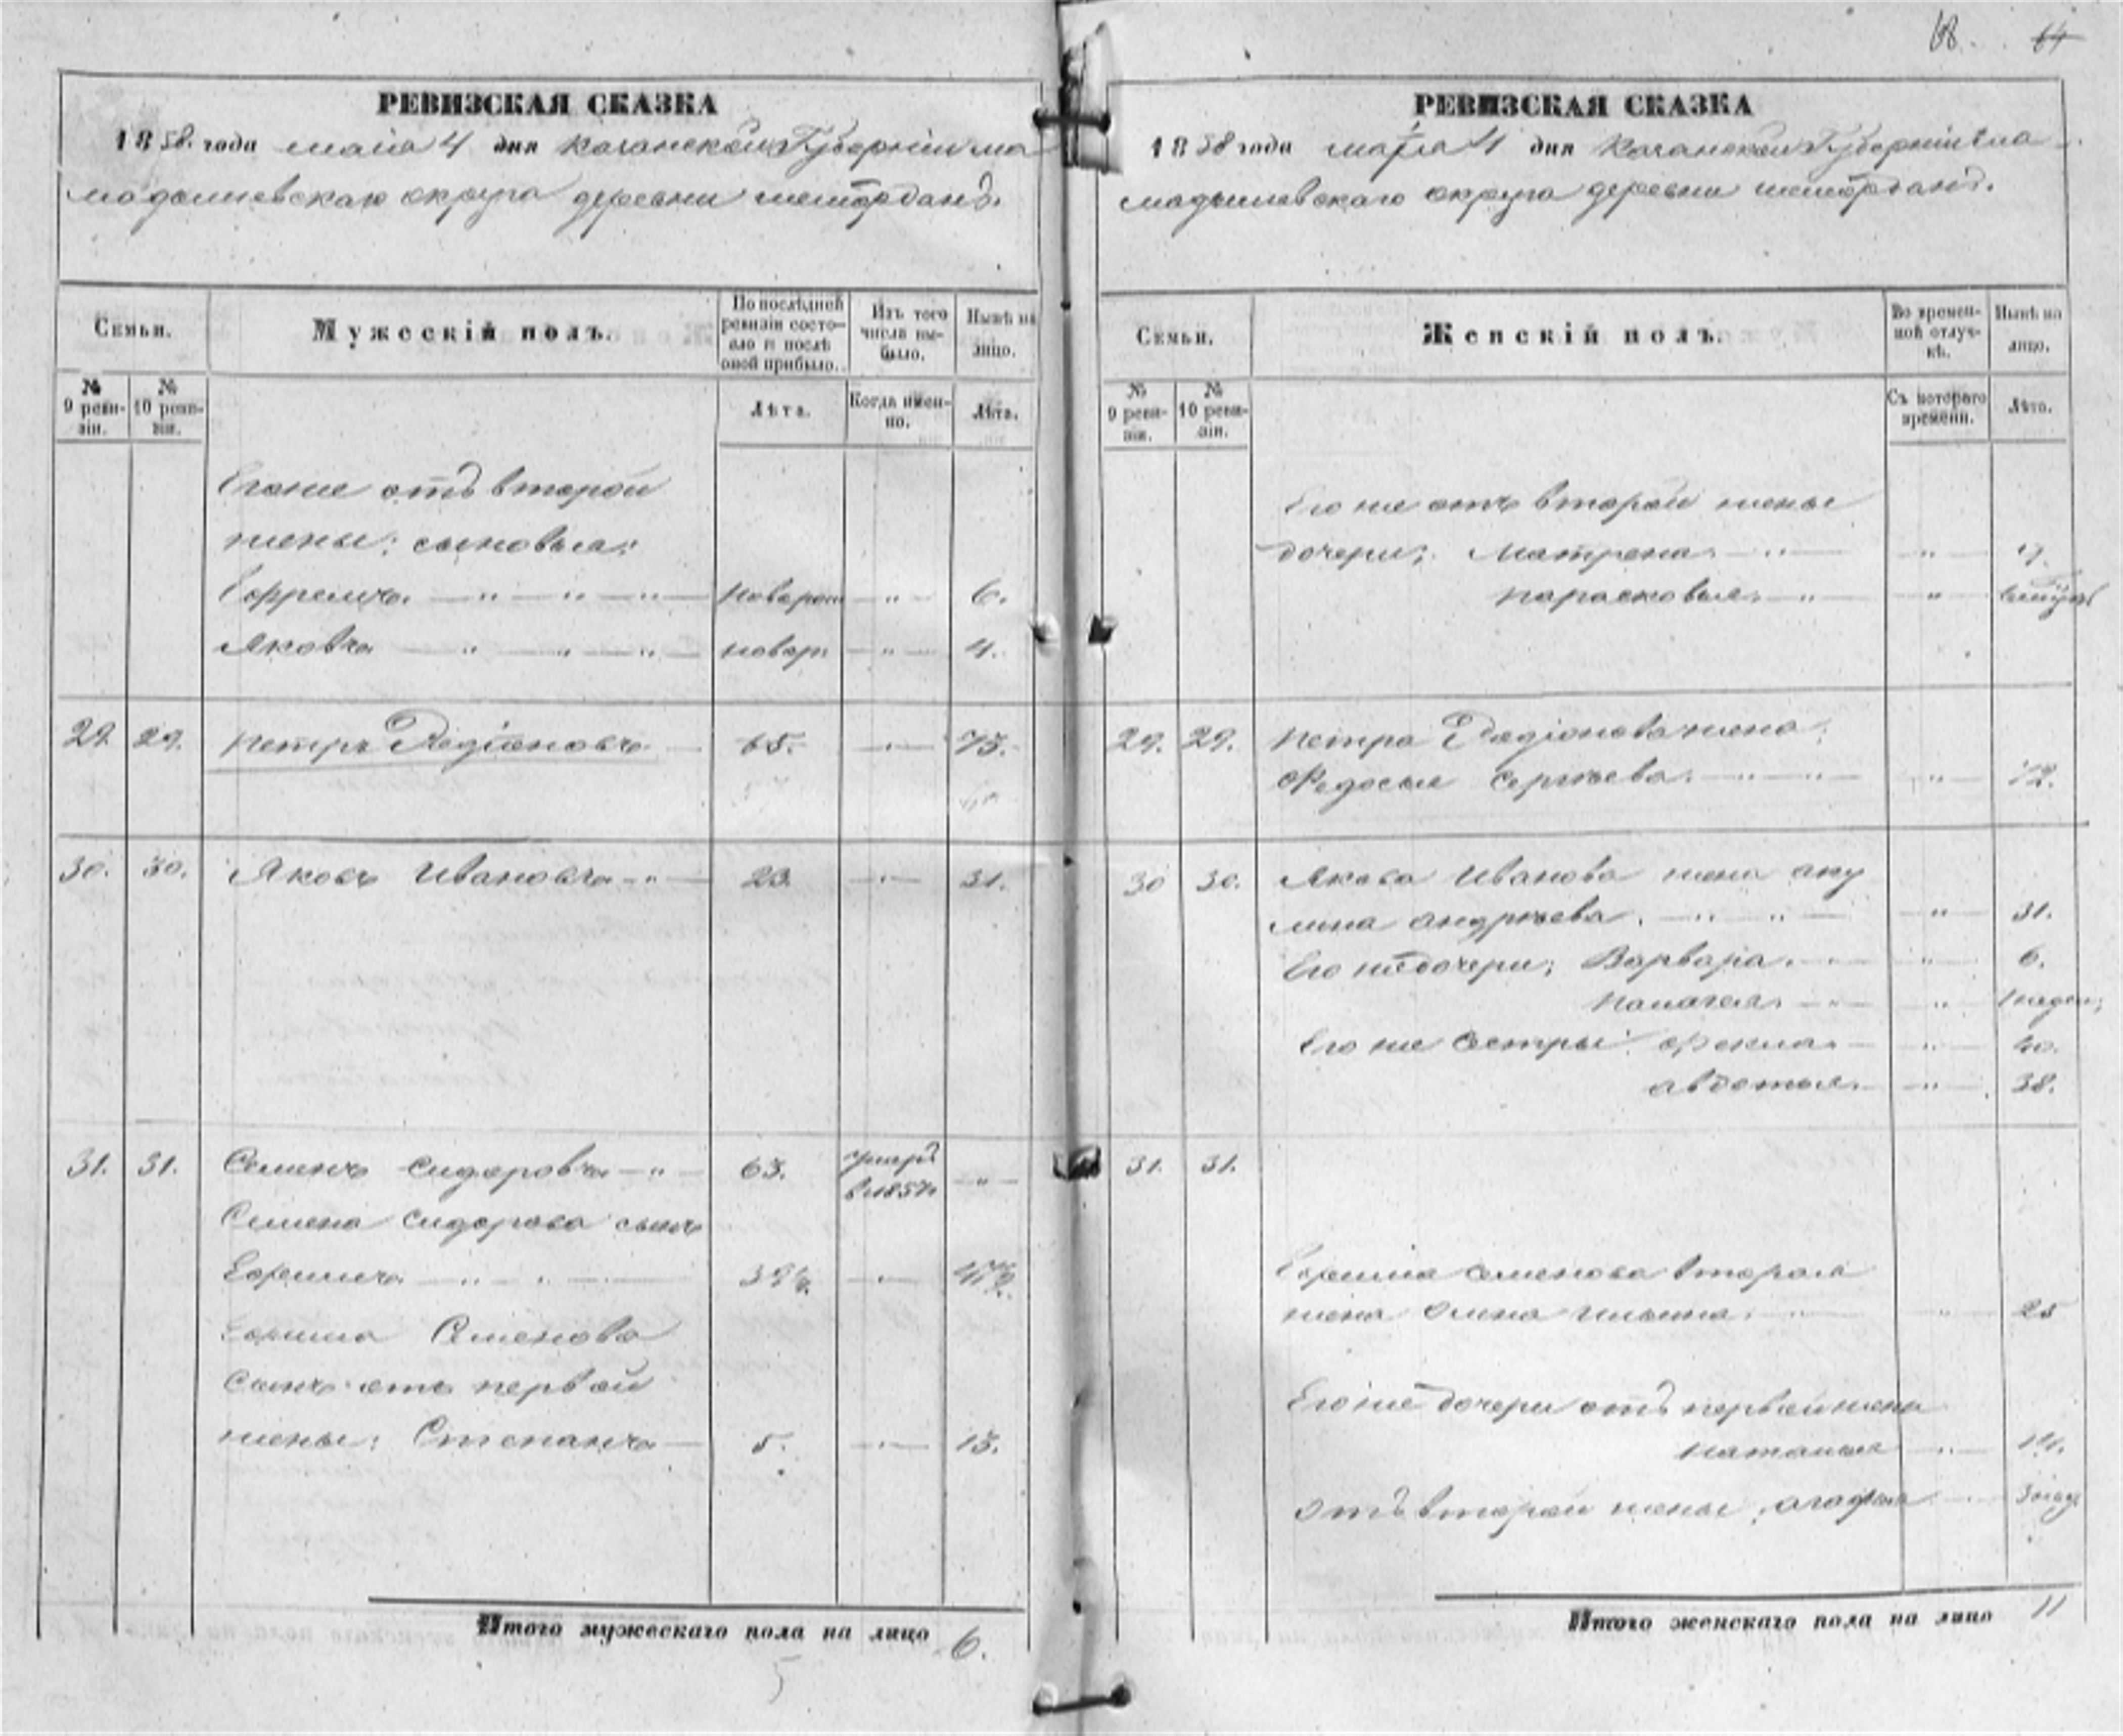 68. 64
РЕВИЗСКАЯ СКАЗКА
1858. года маія 4 дня Казанской Губерніи ма
мадышевскаго округа деревни шемордань.
Семьи.
Мужескій полъ.
По послѣдней ревизіи состояло и послѣ оной прибыло.
Изъ того числа выбыло.
Нынѣ на лицо.
№ 9 ревизіи.
№ 10 ревизіи.
Лѣта.
Когда именно.
Лѣта.
Егоже отъ второй
жены: сыновья:
Ефремъ новорож 6.
Яковъ новор 4.
29 29. Петръ Родіоновъ 65. 73.
30. 30. Яковъ Ивановъ 23. 31.
31. 31. Семенъ Сидоровъ 63. умеръ
в 1857.
Семена Сидорова сынъ
Ефимъ 39½. 47½.
Ефима Семенова
Сынъ отъ первой
жены: Степанъ 5. 13.
Итого мужескаго пола на лицо 6.
5
РЕВИЗСКАЯ СКАЗКА
1858 года маія 4 дня Казанской Губерніи ма
мадышевскаго округа деревни шемордань.
Семьи.
Женскій полъ.
Во временной отлучкѣ.
Нынѣ на лицо.
№ 9 ревизіи.
№ 10 ревизіи.
Съ котораго времени.
Лѣта.
Его же отъ второй жены
дочери: Матрена
парасковья
29. 29. Петра Родіонова жена:
Федосья Сергѣева 72.
30 30. Якова Иванова жена аку
лина андрѣева 31.
Его же дочери: Варвара 6.
Палагея 1 недел;
Его же Сестры: Фекла 40.
авдотья 38.
31. 31.
Ефима Семенова вторая
жена Ильина 25
Его же дочери отъ первой жены
наталья 14.
Отъ второй жены: агафья 3 нед
Итого женскаго пола на лицо 11